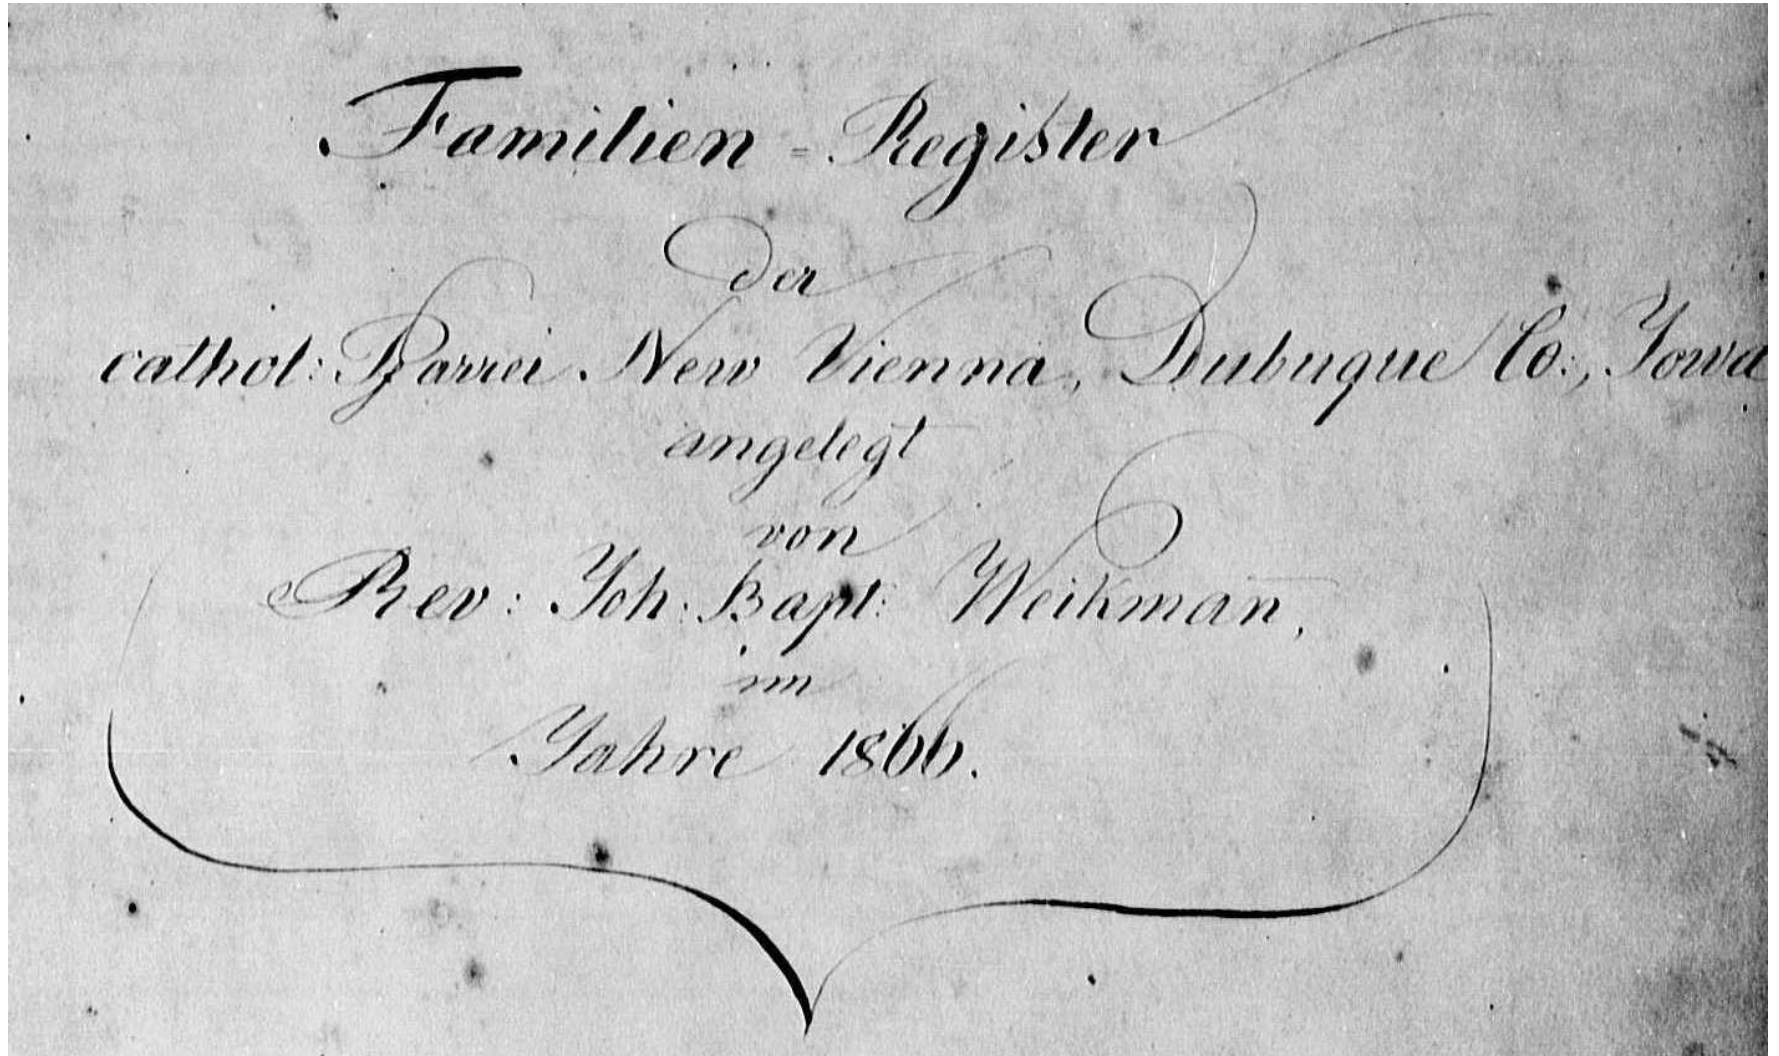 Familien = Register
der
cathol: Pfarrei New Vienna, Dubuque Co:, Iowa
angelegt
von
Rev: Joh: Bapt: Weikman̅,
im
Jahre 1866.